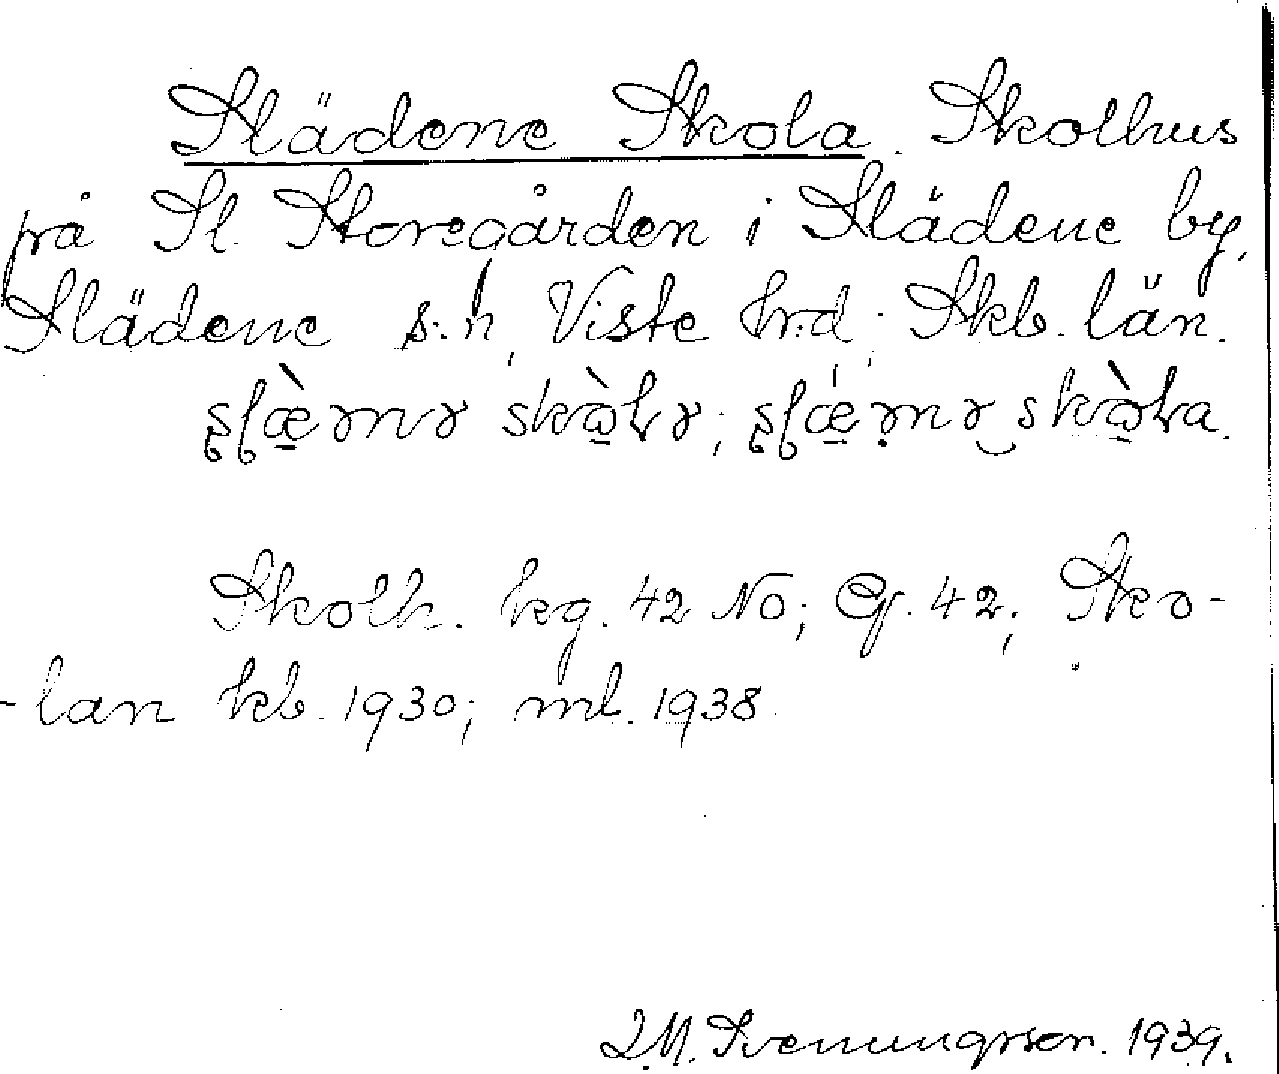 Slädene Skola. Skolhus
på Sl. Storegården i Slädene by,
Slädene s:n, Viste hrd, Skb. län.
Skolh. kg. 42 NO; G. 42; Sko-
-lan kb. 1930; ml. 1938.
Svenungsson. 1939.